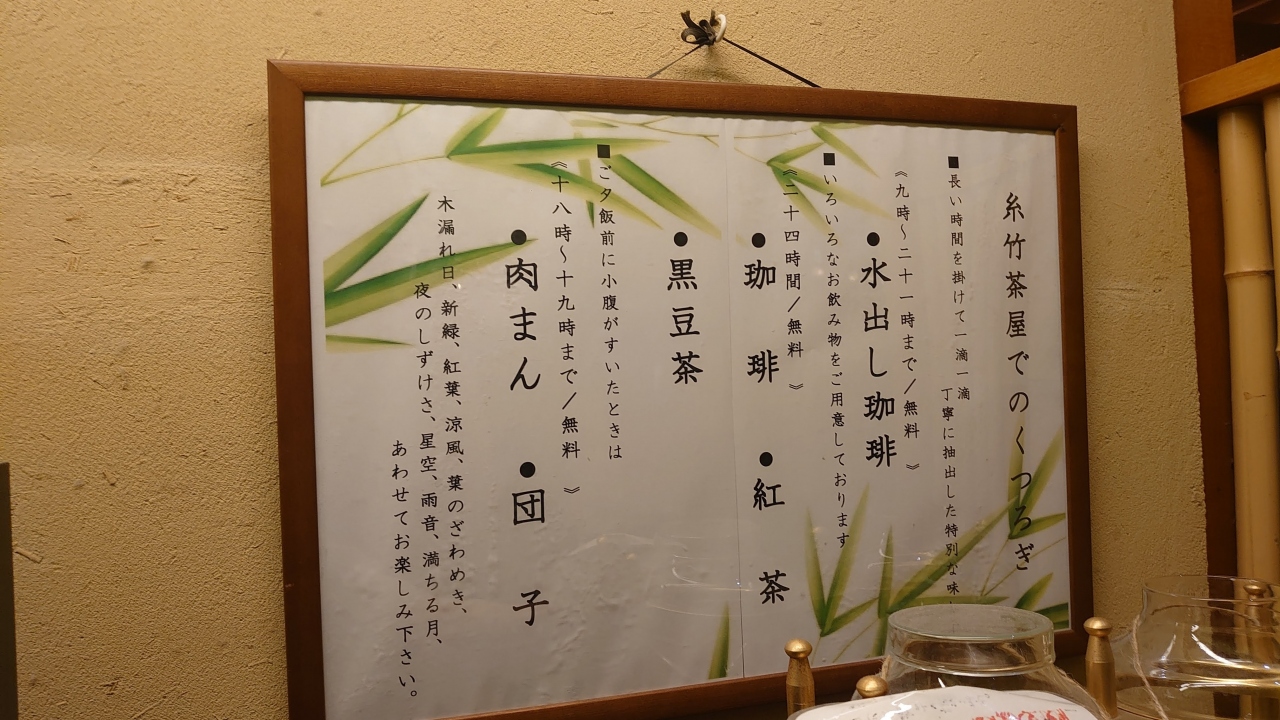 糸竹茶屋でのくつろぎ
■長い時間を掛けて一滴一滴
丁寧に抽出した特別な味
《九時〜二十一時まで／無料》
●水出し珈琲
■いろいろなお飲み物をご用意しております
《二十四時間／無料》
●珈琲 ●紅茶
●黒豆茶
■ご夕飯前に小腹がすいたときは
《十八時〜十九時まで／無料》
●肉まん ●団子
木漏れ日、新緑、紅葉、涼風、葉のざわめき、
夜のしずけさ、星空、雨音、満ちる月、
あわせてお楽しみ下さい。